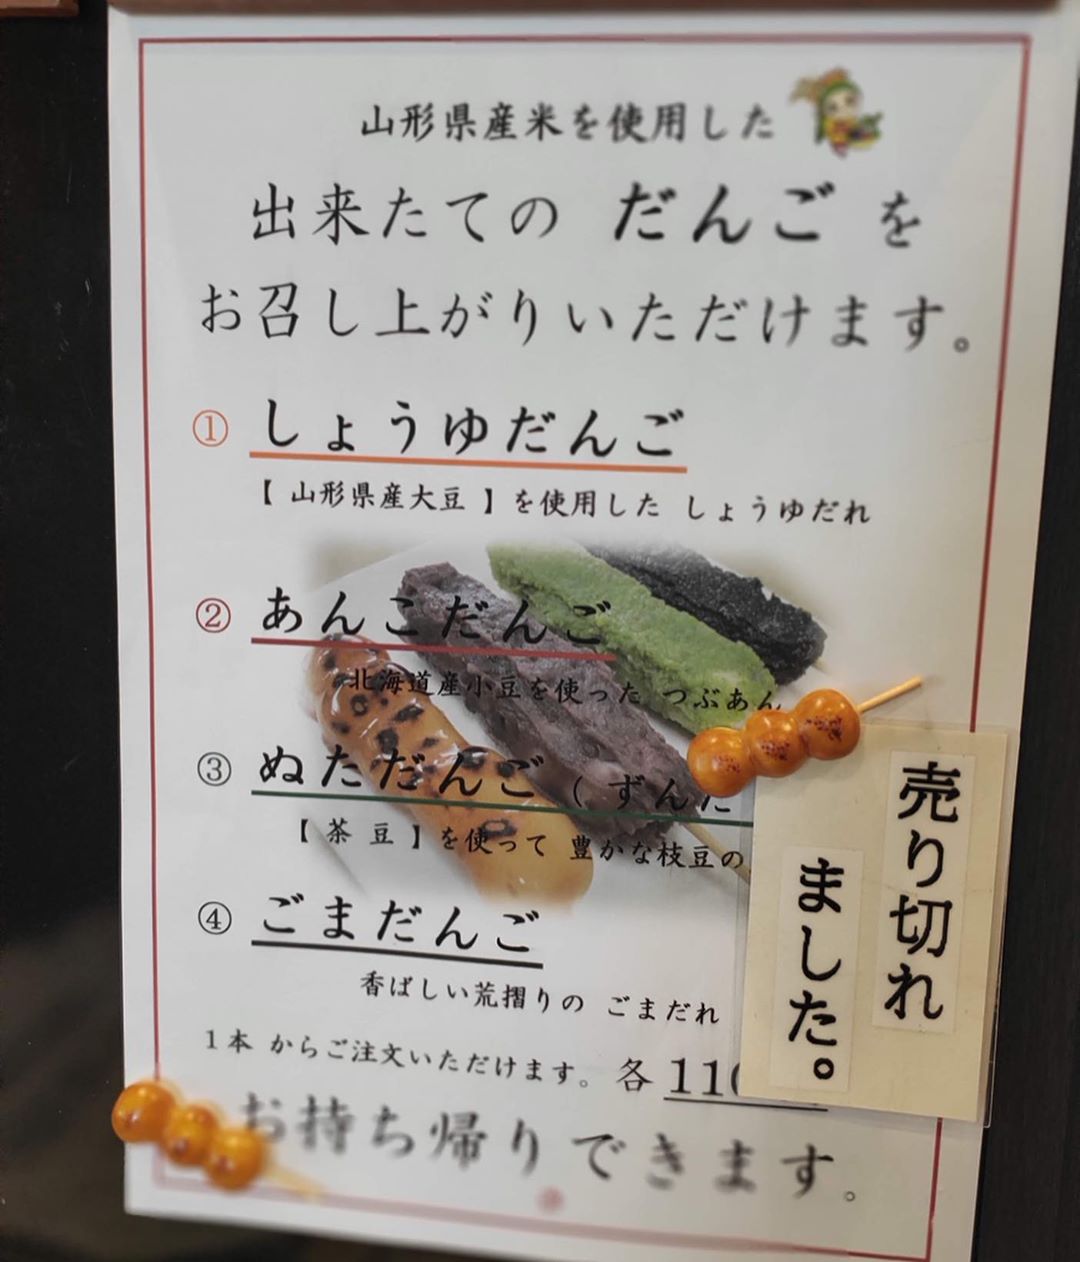 山形県産米を使用した
出来たての だんご を
お召し上がりいただけます。
① しょうゆだんご
【 山形県産大豆 】を使用した しょうゆだれ
② あんこだんご
北海道産小豆を使った つぶあん
③ ぬただんご ( ずんだ
【 茶 豆 】を使って 豊かな枝豆の
④ ごまだんご
香ばしい荒摺りの ごまだれ
1本 からご注文いただけます。 各 110
お持ち帰りできます。
売り切れ
ました。